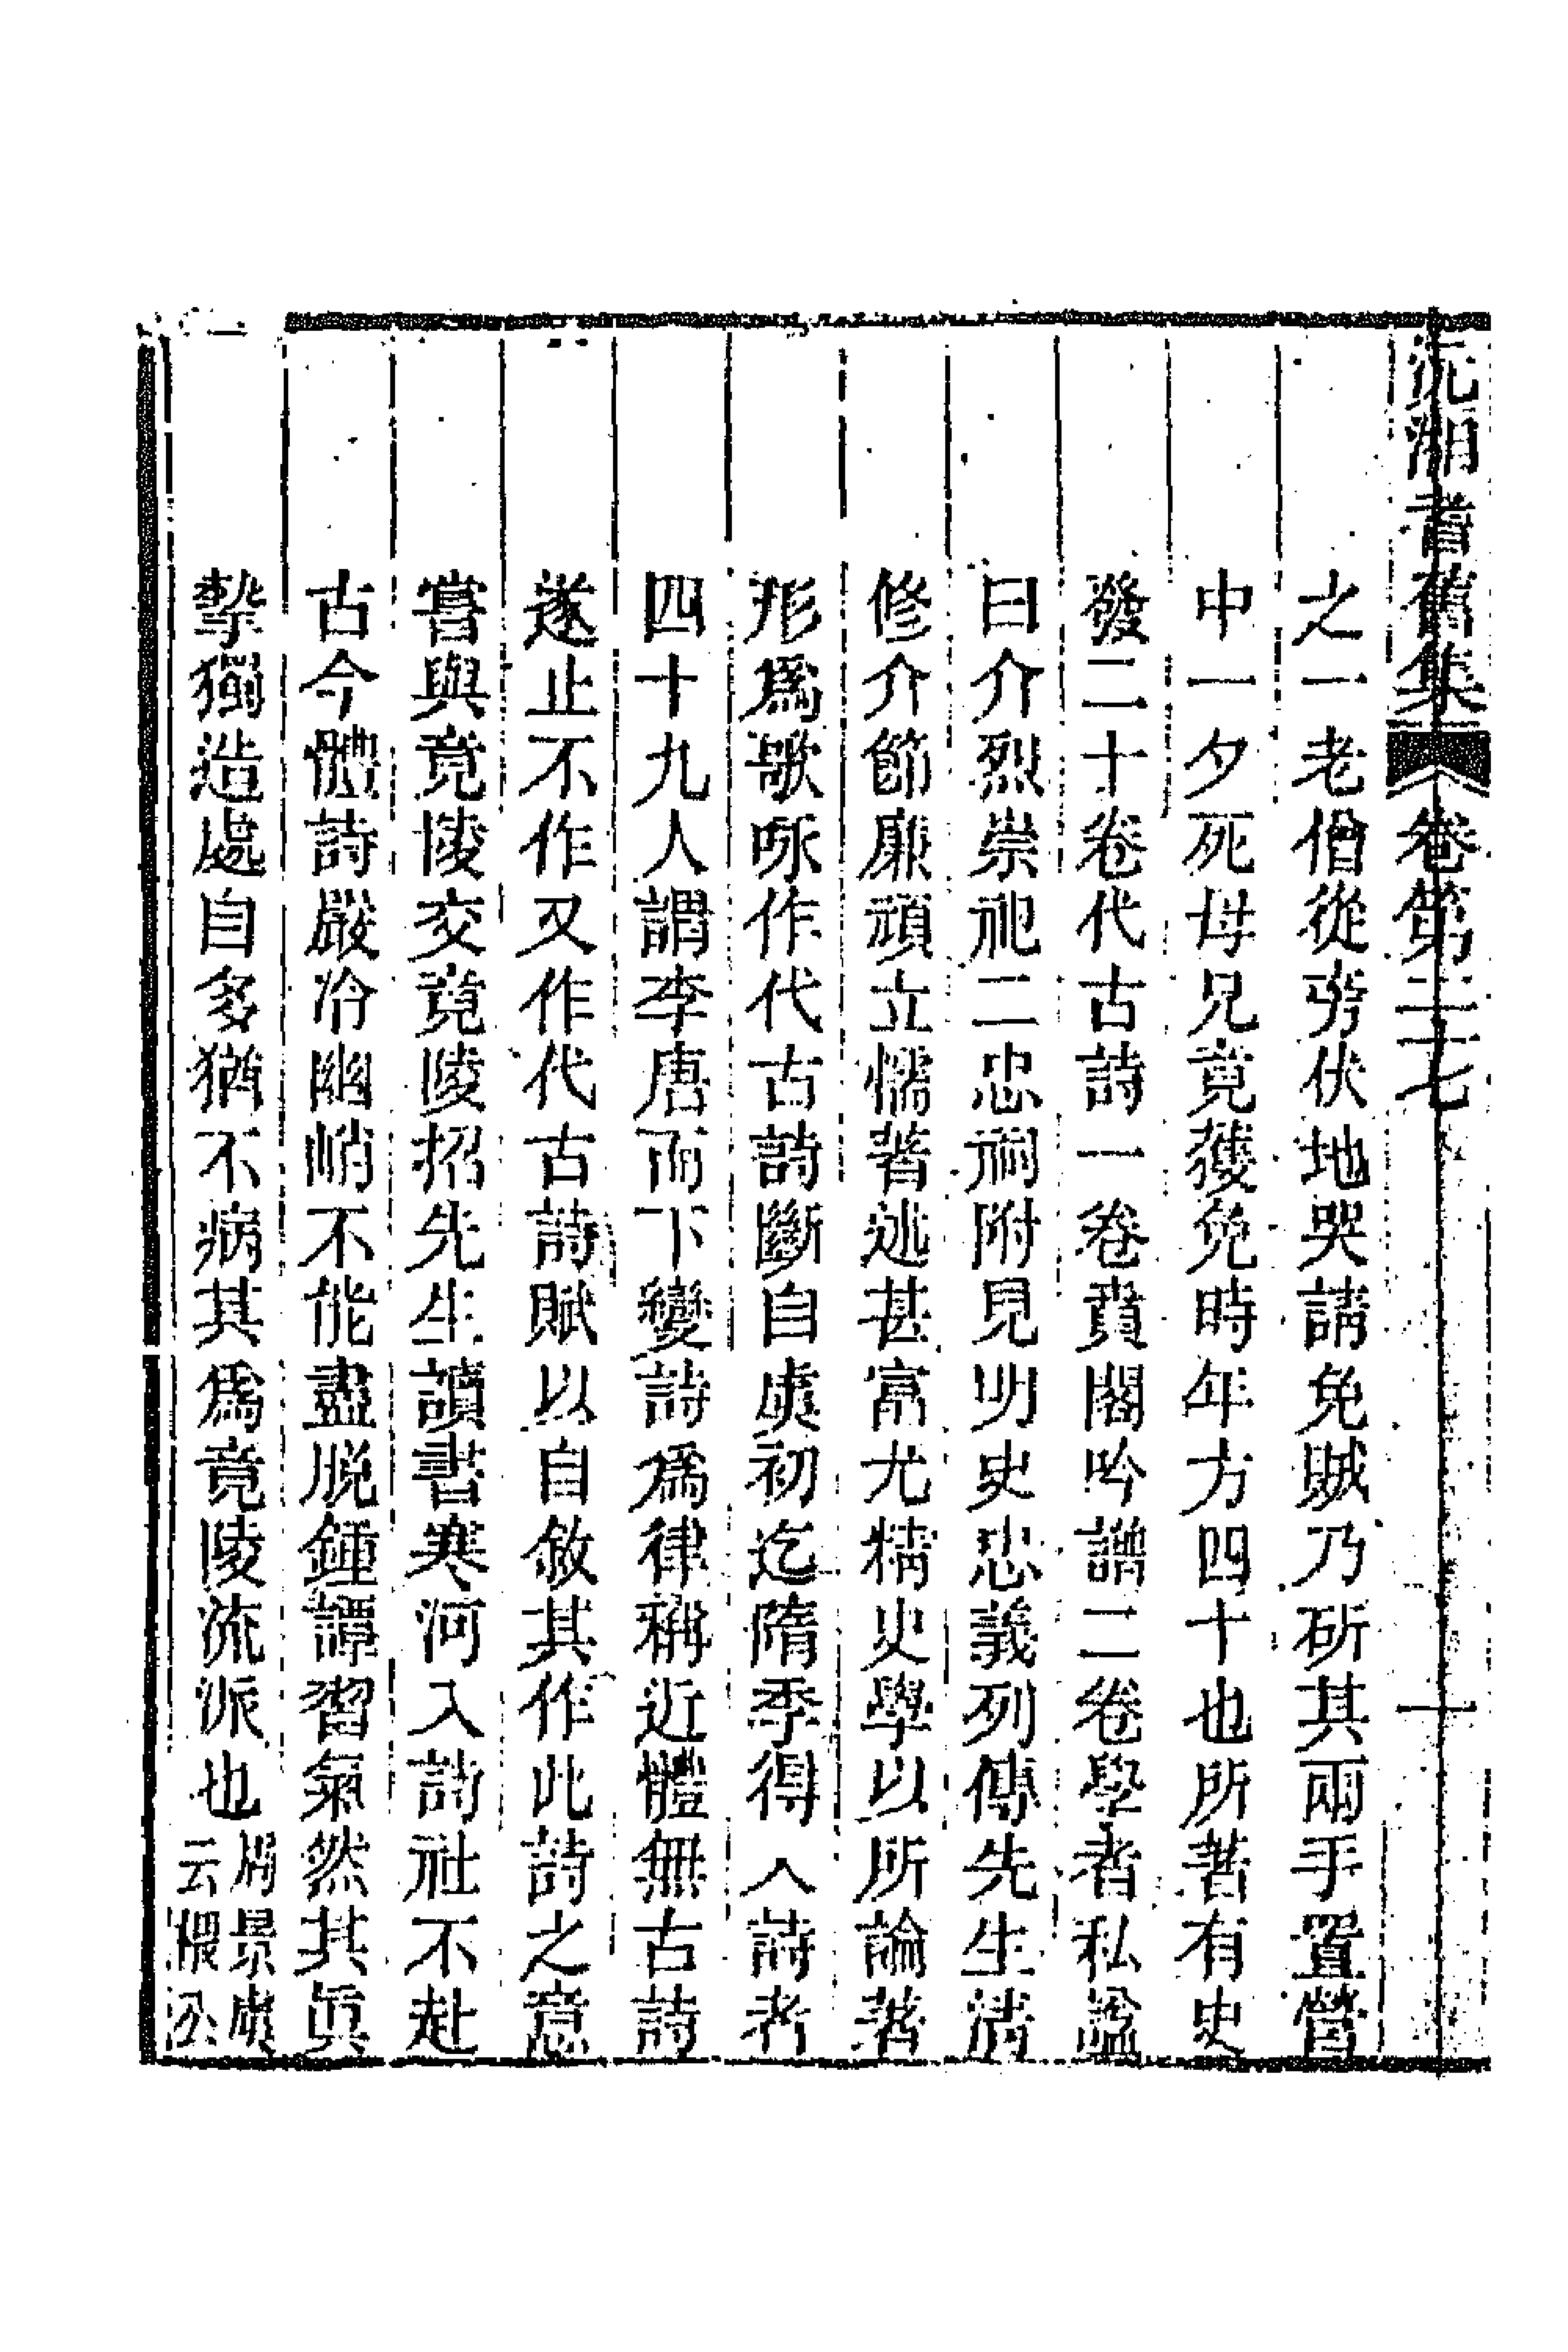 沅湘耆舊集 卷第二十七 十
之一老僧從旁伏地哭請免賊乃斫其兩手置營
中一夕死母兄竟獲免時年方四十也所著有史
發二十卷代古詩一卷賁閣吟譜二卷學者私諡
曰介烈崇祀二忠祠附見明史忠義列傳先生清
修介節廉頑立懦著述甚富尤精史學以所論著
形爲歌咏作代古詩斷自虞初迄隋季得人詩者
四十九人謂李唐而下變詩爲律稱近體無古詩
遂止不作又作代古詩賦以自敘其作此詩之意
嘗與竟陵交竟陵招先生讀書寒河入詩社不赴
古今體詩嚴冷幽峭不能盡脫鍾譚習氣然其眞
摯獨造處自多猶不病其爲竟陵流派也周景虞
云隈公